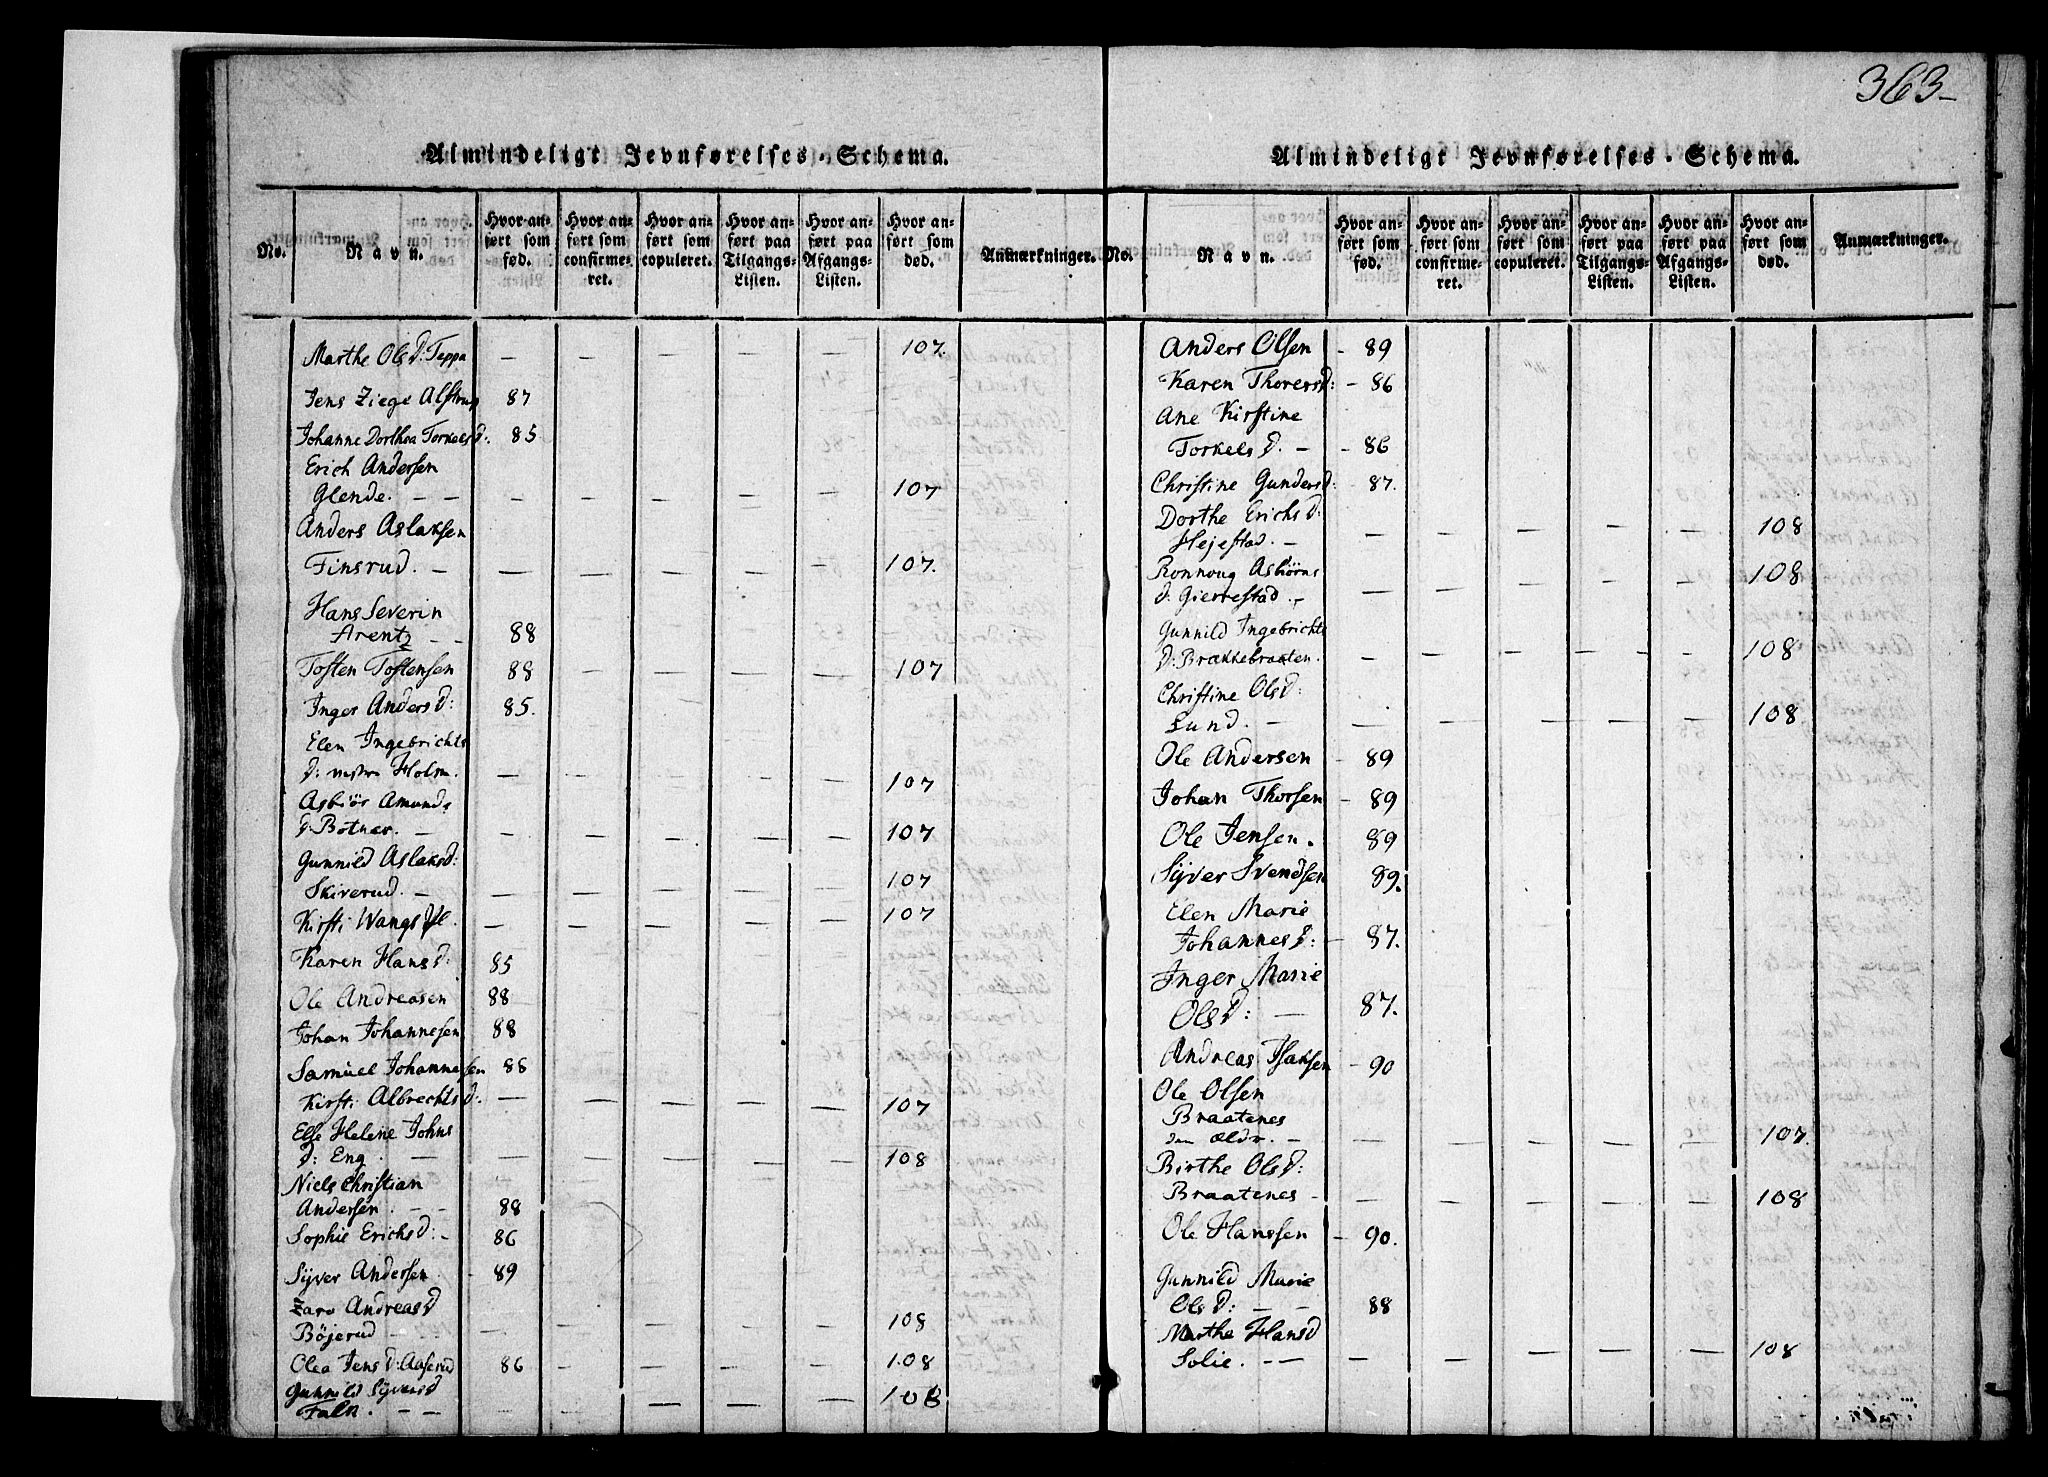 363-
Almindeligt Jevnførelses-Schema.
No. Navn. Hvor anført som fød. Hvor anført som confirmeret. Hvor anført som copuleret. Hvor anført paa Tilgangs-Listen. Hvor anført paa Afgangs-Listen. Hvor anført som død. Anmærkninger.
Marthe Olsd: Teppa — — — — — 107.
Jens Ziege Alstrup 87
Johanne Dorthea Torkelsd: 85
Erich Andersen
Glende. — — — — — — — 107
Anders Aslaksen
Finsrud. — — — — — — 107.
Hans Severin
Arentz — — 88
Tosten Tostensen 88 — — — — 107
Inger Andersd: 85.
Elen Ingebrichts
d: Holm. — — — — — 107
Asbiör Amunds
d: Botner. — — — — — — 107
Gunnild Aslaksd:
Skiverud. — — — — — — 107
Kirsti Wangs — — — — — 107
Karen Hansd: 85
Ole Andreasen 88
Johan Johannesen 88
Samuel Johannesen 88
Kirsti Albrechtsd: — — — — — 107
Else Helene Johns
d: Eng. — — — — — — 108
Niels Christian
Andersen. — — 88
Sophie Erichsd: - 86
Syver Andersen - 89
Zara Andreasd
Böjerud — — — — — — 108
Olea Jensd: Aaserud 86 — — — — 108
Gunnild Syversd
Faln. — — — — — — 108
Almindeligt Jevnførelses-Schema.
No. Navn. Hvor anført som fød. Hvor anført som confirmeret. Hvor anført som copuleret. Hvor anført paa Tilgangs-Listen. Hvor anført paa Afgangs-Listen. Hvor anført som død. Anmærkninger.
Anders Olsen - 89
Karen Thorersd: - 86
Ane Kirstine
Torkelsd. — - 86
Christine Gundersd: - 87.
Dorthe Erichsd:
Hejestad. — — — — — — 108
Ronnoug Asbörns
d: Gierrestad. - — — — — — 108
Gunnild Ingebrichts
d: Brækkebraaten. — — — — — 108
Christine Olsd:
Lund. — — — — — — 108
Ole Andersen - 89
Johan Thorsen - 89
Ole Jensen. 89
Syver Svendsen 89.
Elen Marie
Johannesd: - 87.
Inger Marie
Olsd: — 87.
Andreas Isaksen - 90
Ole Olsen
Braatenes
den Ældr. — — — — — — 107.
Birthe Olsd:
Braatenes - — — — — — 108
Ole Hanssen - 90.
Gunnild Marie
Olsd: — — 88
Marthe Hansd
Solie. — — — — — — — 108